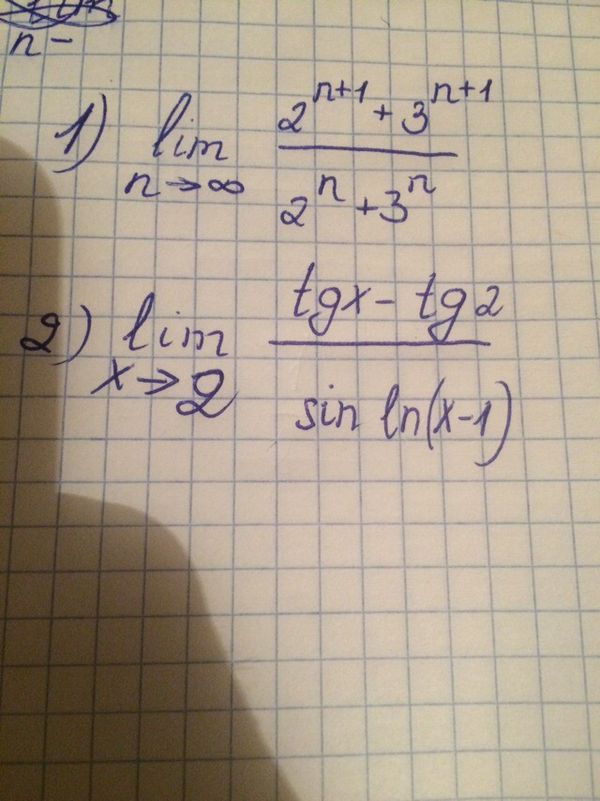 n -
1) lim n→∞ (2^(n+1) + 3^(n+1)) / (2^n + 3^n)
2) lim x→2 (tgx - tg2) / (sin ln(x-1))